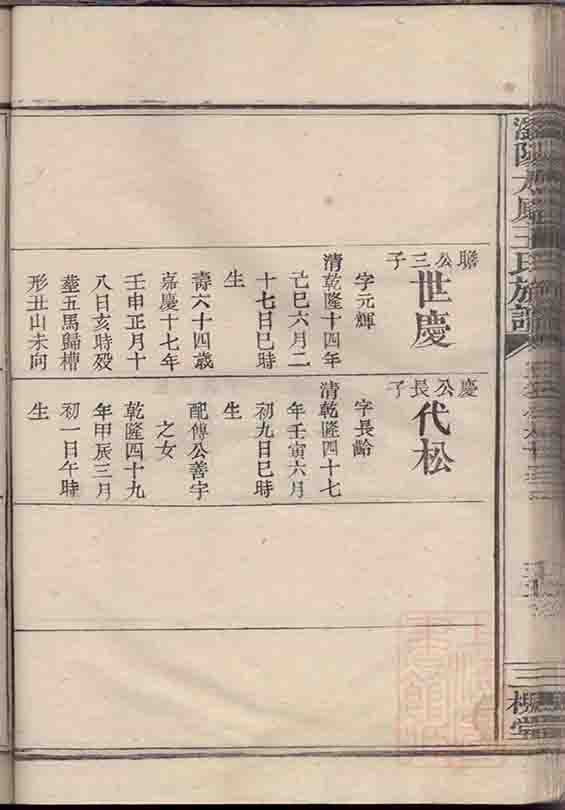 聯公三子
世慶
字元輝
清乾隆十四年
亡巳六月二
十七日巳時
生
壽六十四歲
嘉慶十七年
壬申正月十
八日亥時殁
塟五馬歸槽
形丑山未向
慶公長子
代松
字長齡
清乾隆四十七
年壬寅六月
初九日巳時
生
配傅公善宇
之女
乾隆四十九
年甲辰三月
初一日午時
生
王氏族譜
槐堂